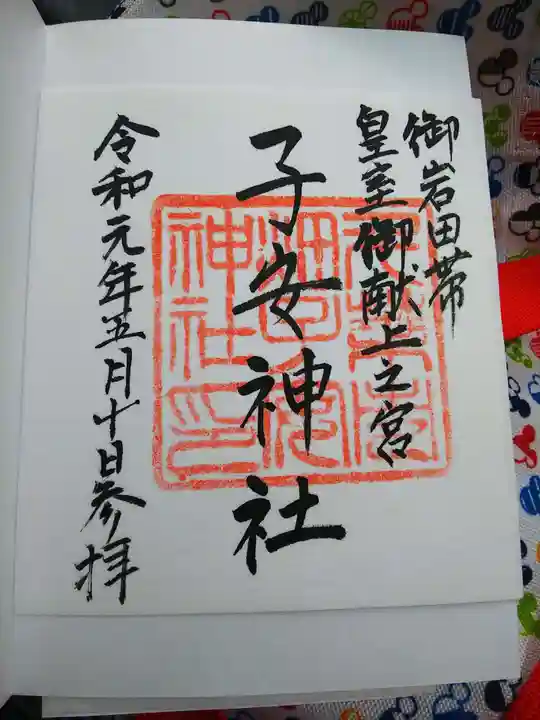 御岩田帯
皇室御献上之宮
子安神社
令和元年五月十日参拝